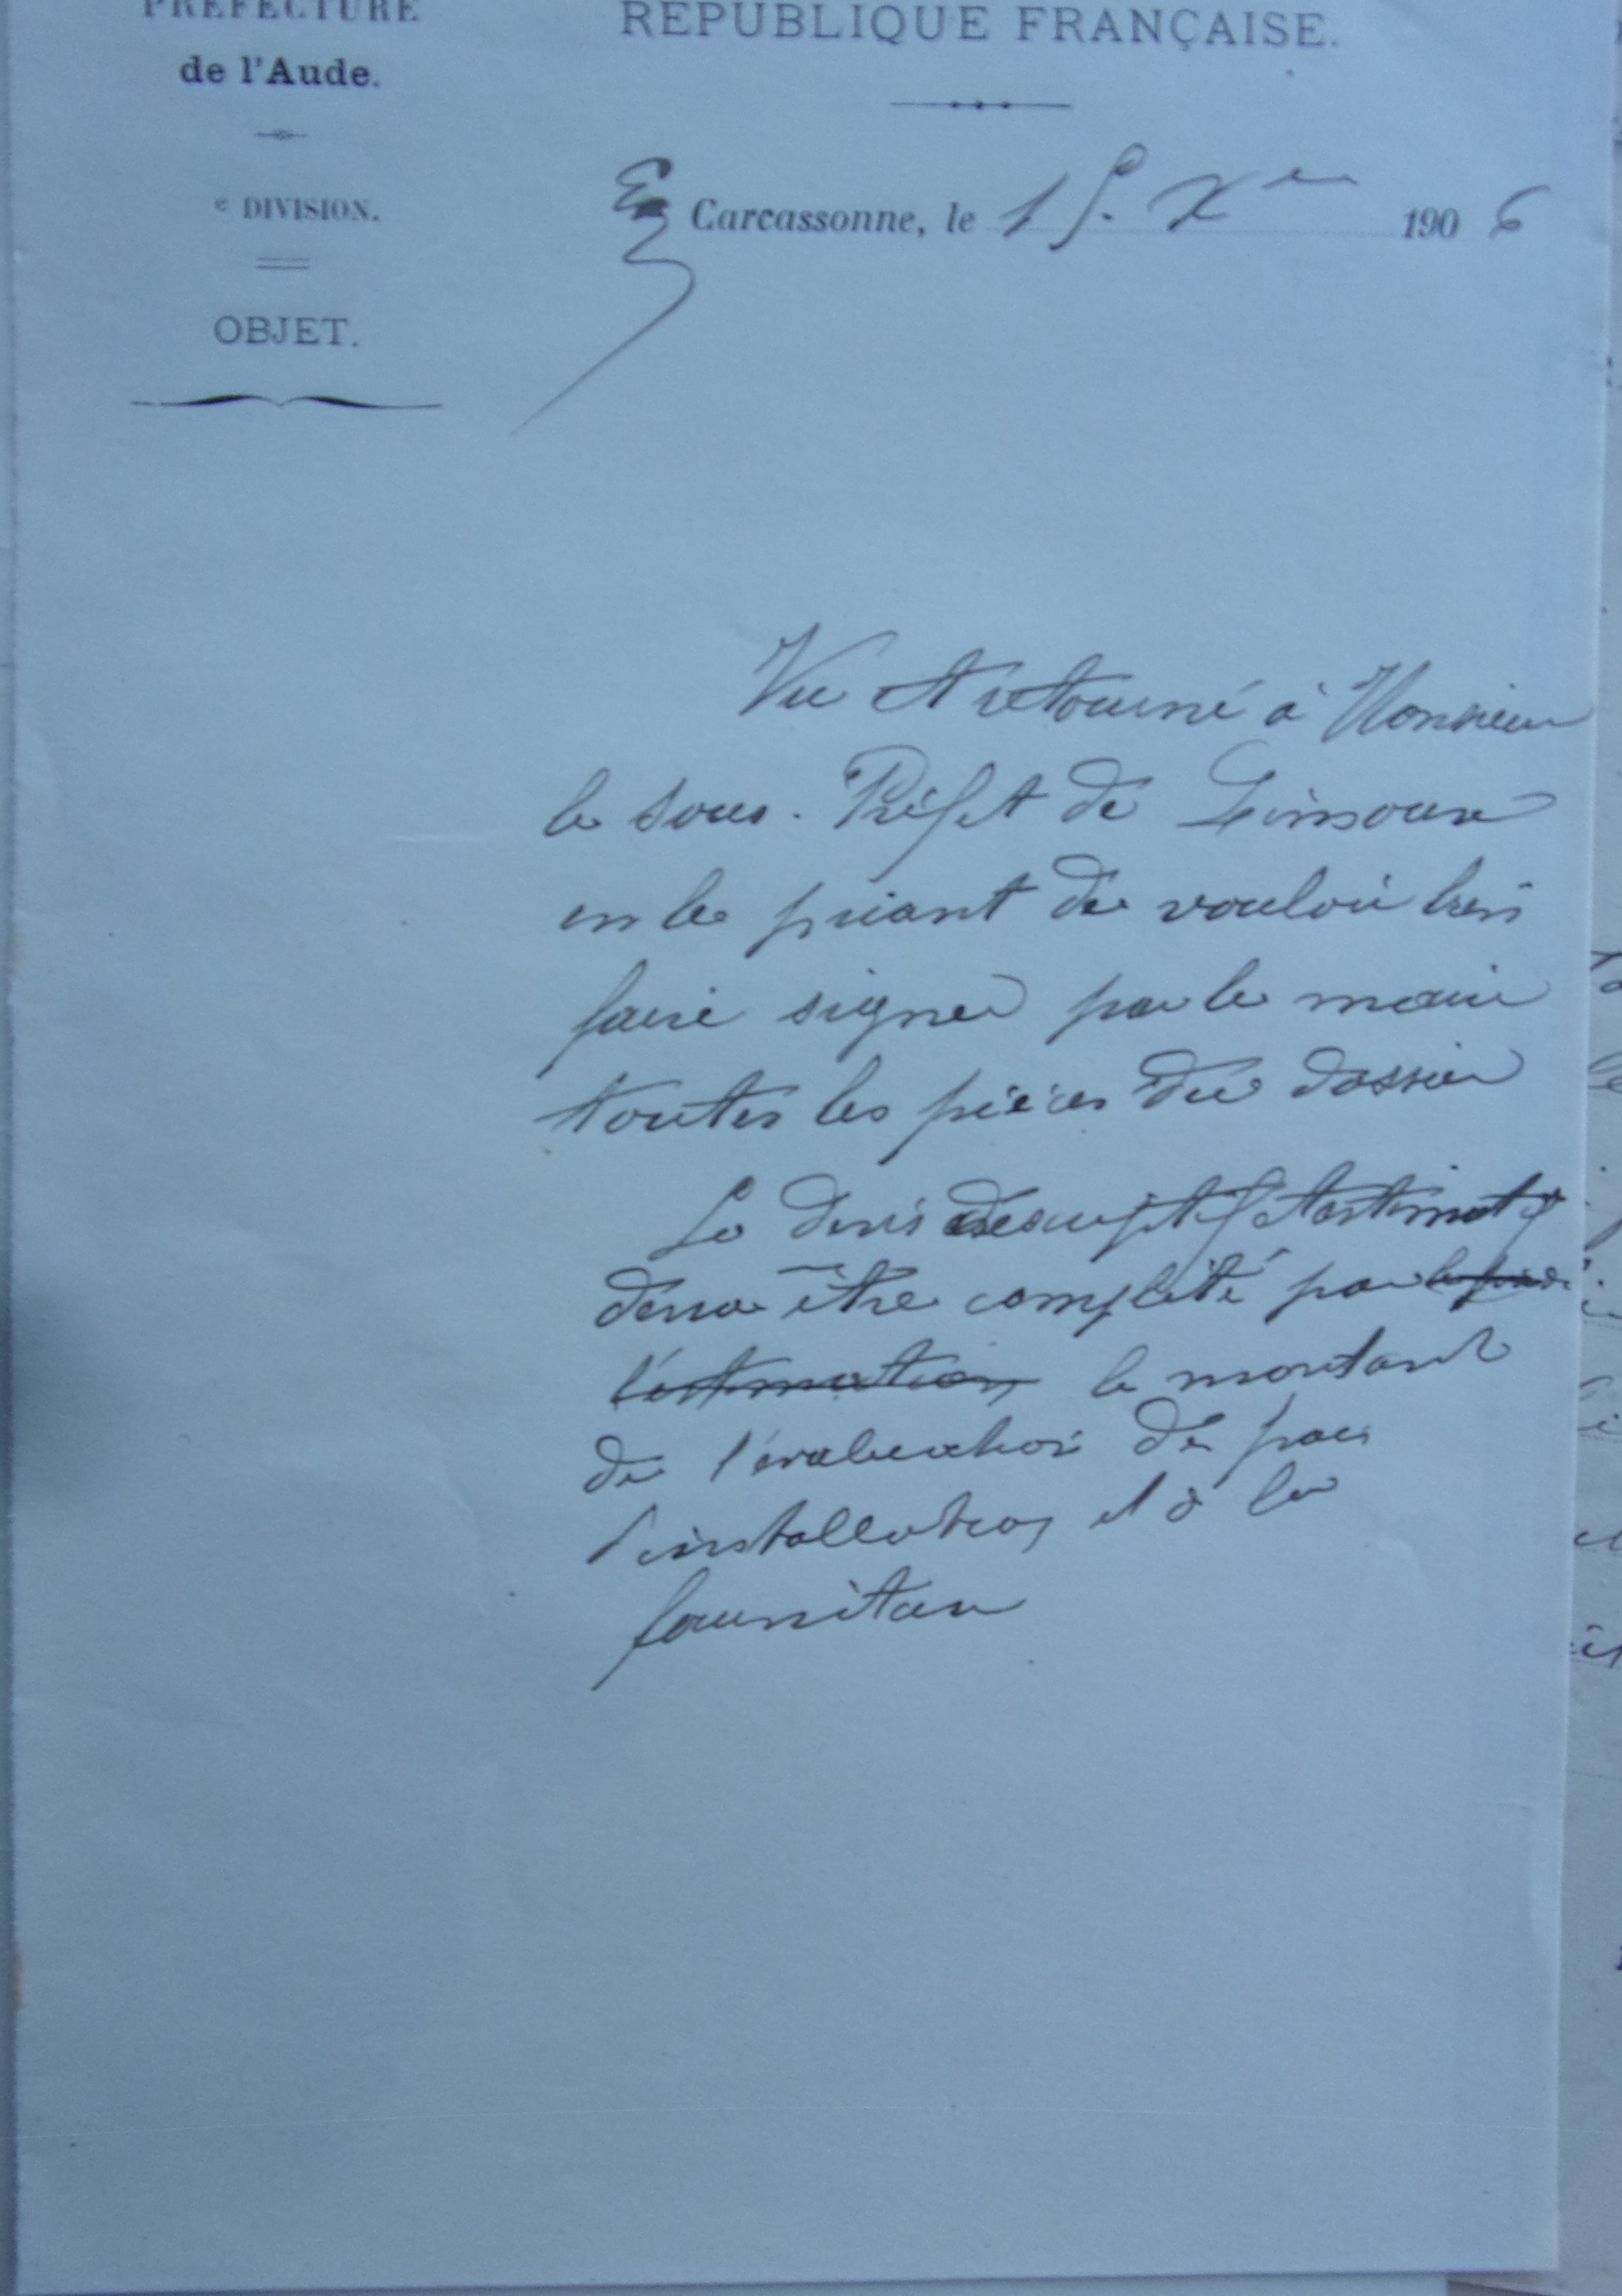 PRÉFECTURE
de l'Aude.
e DIVISION.
OBJET.
RÉPUBLIQUE FRANÇAISE.
Carcassonne, le 15. Xre 1906
Vu et retourné à Monsieur
le Sous-Préfet de Limoux
en le priant de vouloir bien
faire signer par le maire
toutes les pièces du dossier
Le devis descriptif et estimatif
devra être complété par
l'estimation le montant
de l'évaluation de frais
d'installation et à la
fourniture